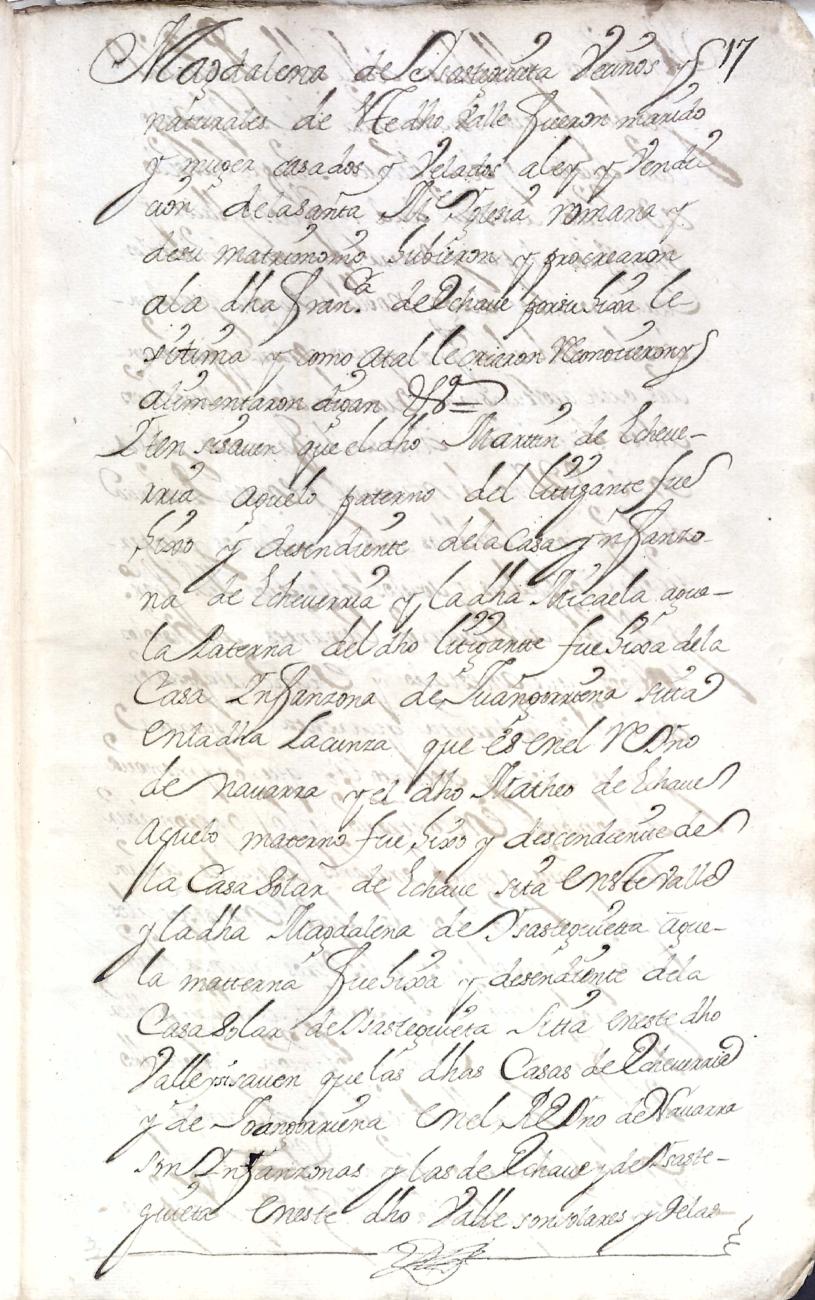 17
Magdalena de Usastegieta Vecinos y
naturales de este dho Valle fueron marido
y muger casados y Velados a ley y Vendi
cion de la santa Me Yglesia romana y
de su matrimonio hubieron y procrearon
a la dha Franca de Echaue por su hixa le
xitima y como atal le criaron Reconocieron y
alimentaron digan &a =
Iten si sauen que el dho Martin de Echeue-
rria aguelo paterno del litigante fue
hixo y desendiente de la Casa ynfanzo-
na de Echeuerria y la dha Micaela ague-
la Paterna del dho litigante fue hixa de la
Casa Infanzona de Juangorriena sitta
en la dha Lacunza que es en el Reyno
de Nauarra y el dho Matheo de Echaue
aguelo materno fue hixo y descendiente de
la Casa Solar de Echaue sita en este Valle
y la dha Magdalena de Usastegieta ague-
la matterna fue hixa y desendiente de la
Casa Solar de Usastegieta sitta en este dho
Valle y si sauen que las dhas Casas de Echeuerria
y de Joangorriena en el Reyno de Nauarra
son Infanzonas y las de Echaue y de Usaste-
gieta en este dho Valle son solares y de las